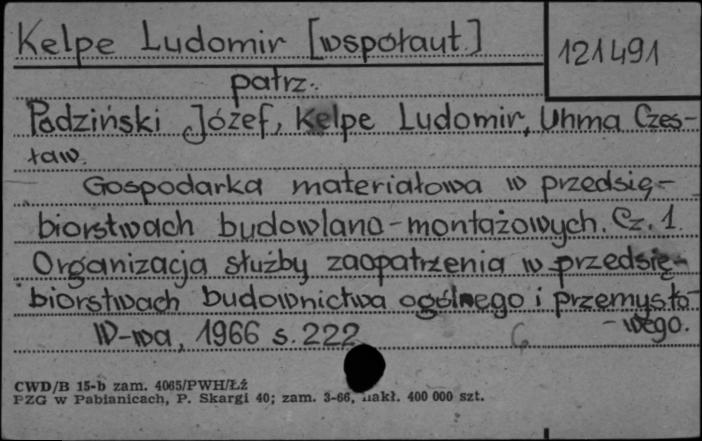 Kelpe Ludomir [współaut.]
121491
patrz:
Podziński Józef, Kelpe Ludomir, Uhma Czes-
ław.
Gospodarka materiałowa w przedsię-
biorstwach budowlano-montażowych. Cz. 1.
Organizacja służby zaopatrzenia w przedsię-
biorstwach budownictwa ogólnego i przemysło-
- wego.
W-wa, 1966 s. 222
6
CWD/B 15-b zam. 4065/PWH/Łż
PZG w Pabianicach, P. Skargi 40; zam. 3-66, nakł. 400 000 szt.